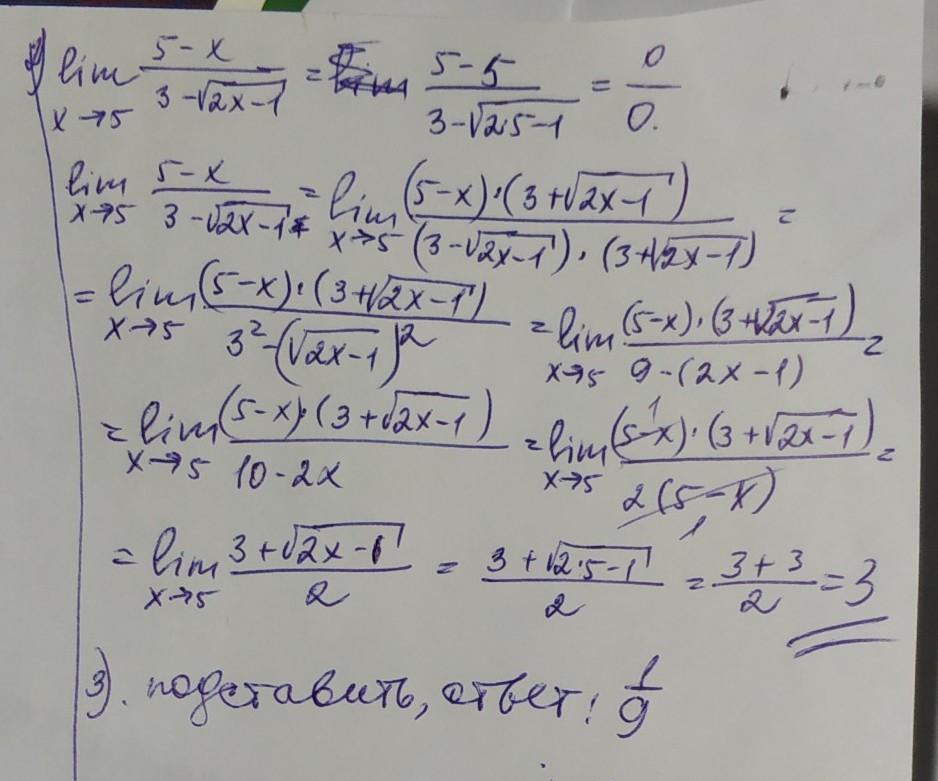 lim x→5 (5-x)/(3-√(2x-1)) = (5-5)/(3-√(2·5-1)) = 0/0.
lim x→5 (5-x)/(3-√(2x-1)) = lim x→5 ((5-x)·(3+√(2x-1)))/((3-√(2x-1))·(3+√(2x-1))) =
= lim x→5 ((5-x)·(3+√(2x-1)))/(3²-(√(2x-1))²) = lim x→5 ((5-x)·(3+√(2x-1)))/(9-(2x-1)) =
= lim x→5 ((5-x)·(3+√(2x-1)))/(10-2x) = lim x→5 ((5-x)·(3+√(2x-1)))/(2(5-x)) =
= lim x→5 (3+√(2x-1))/2 = (3+√(2·5-1))/2 = (3+3)/2 = 3
3). подставить, ответ: 1/9